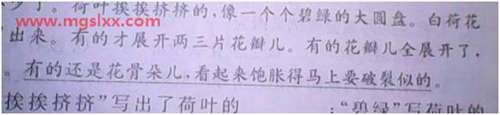 www.mgslxx.com
少了。荷叶挨挨挤挤的,像一个个碧绿的大圆盘。白荷花
出来。有的才展开两三片花瓣儿。有的花瓣儿全展开了,
。有的还是花骨朵儿,看起来饱胀得马上要破裂似的。
挨挨挤挤”写出了荷叶的 ;“碧绿”写荷叶的